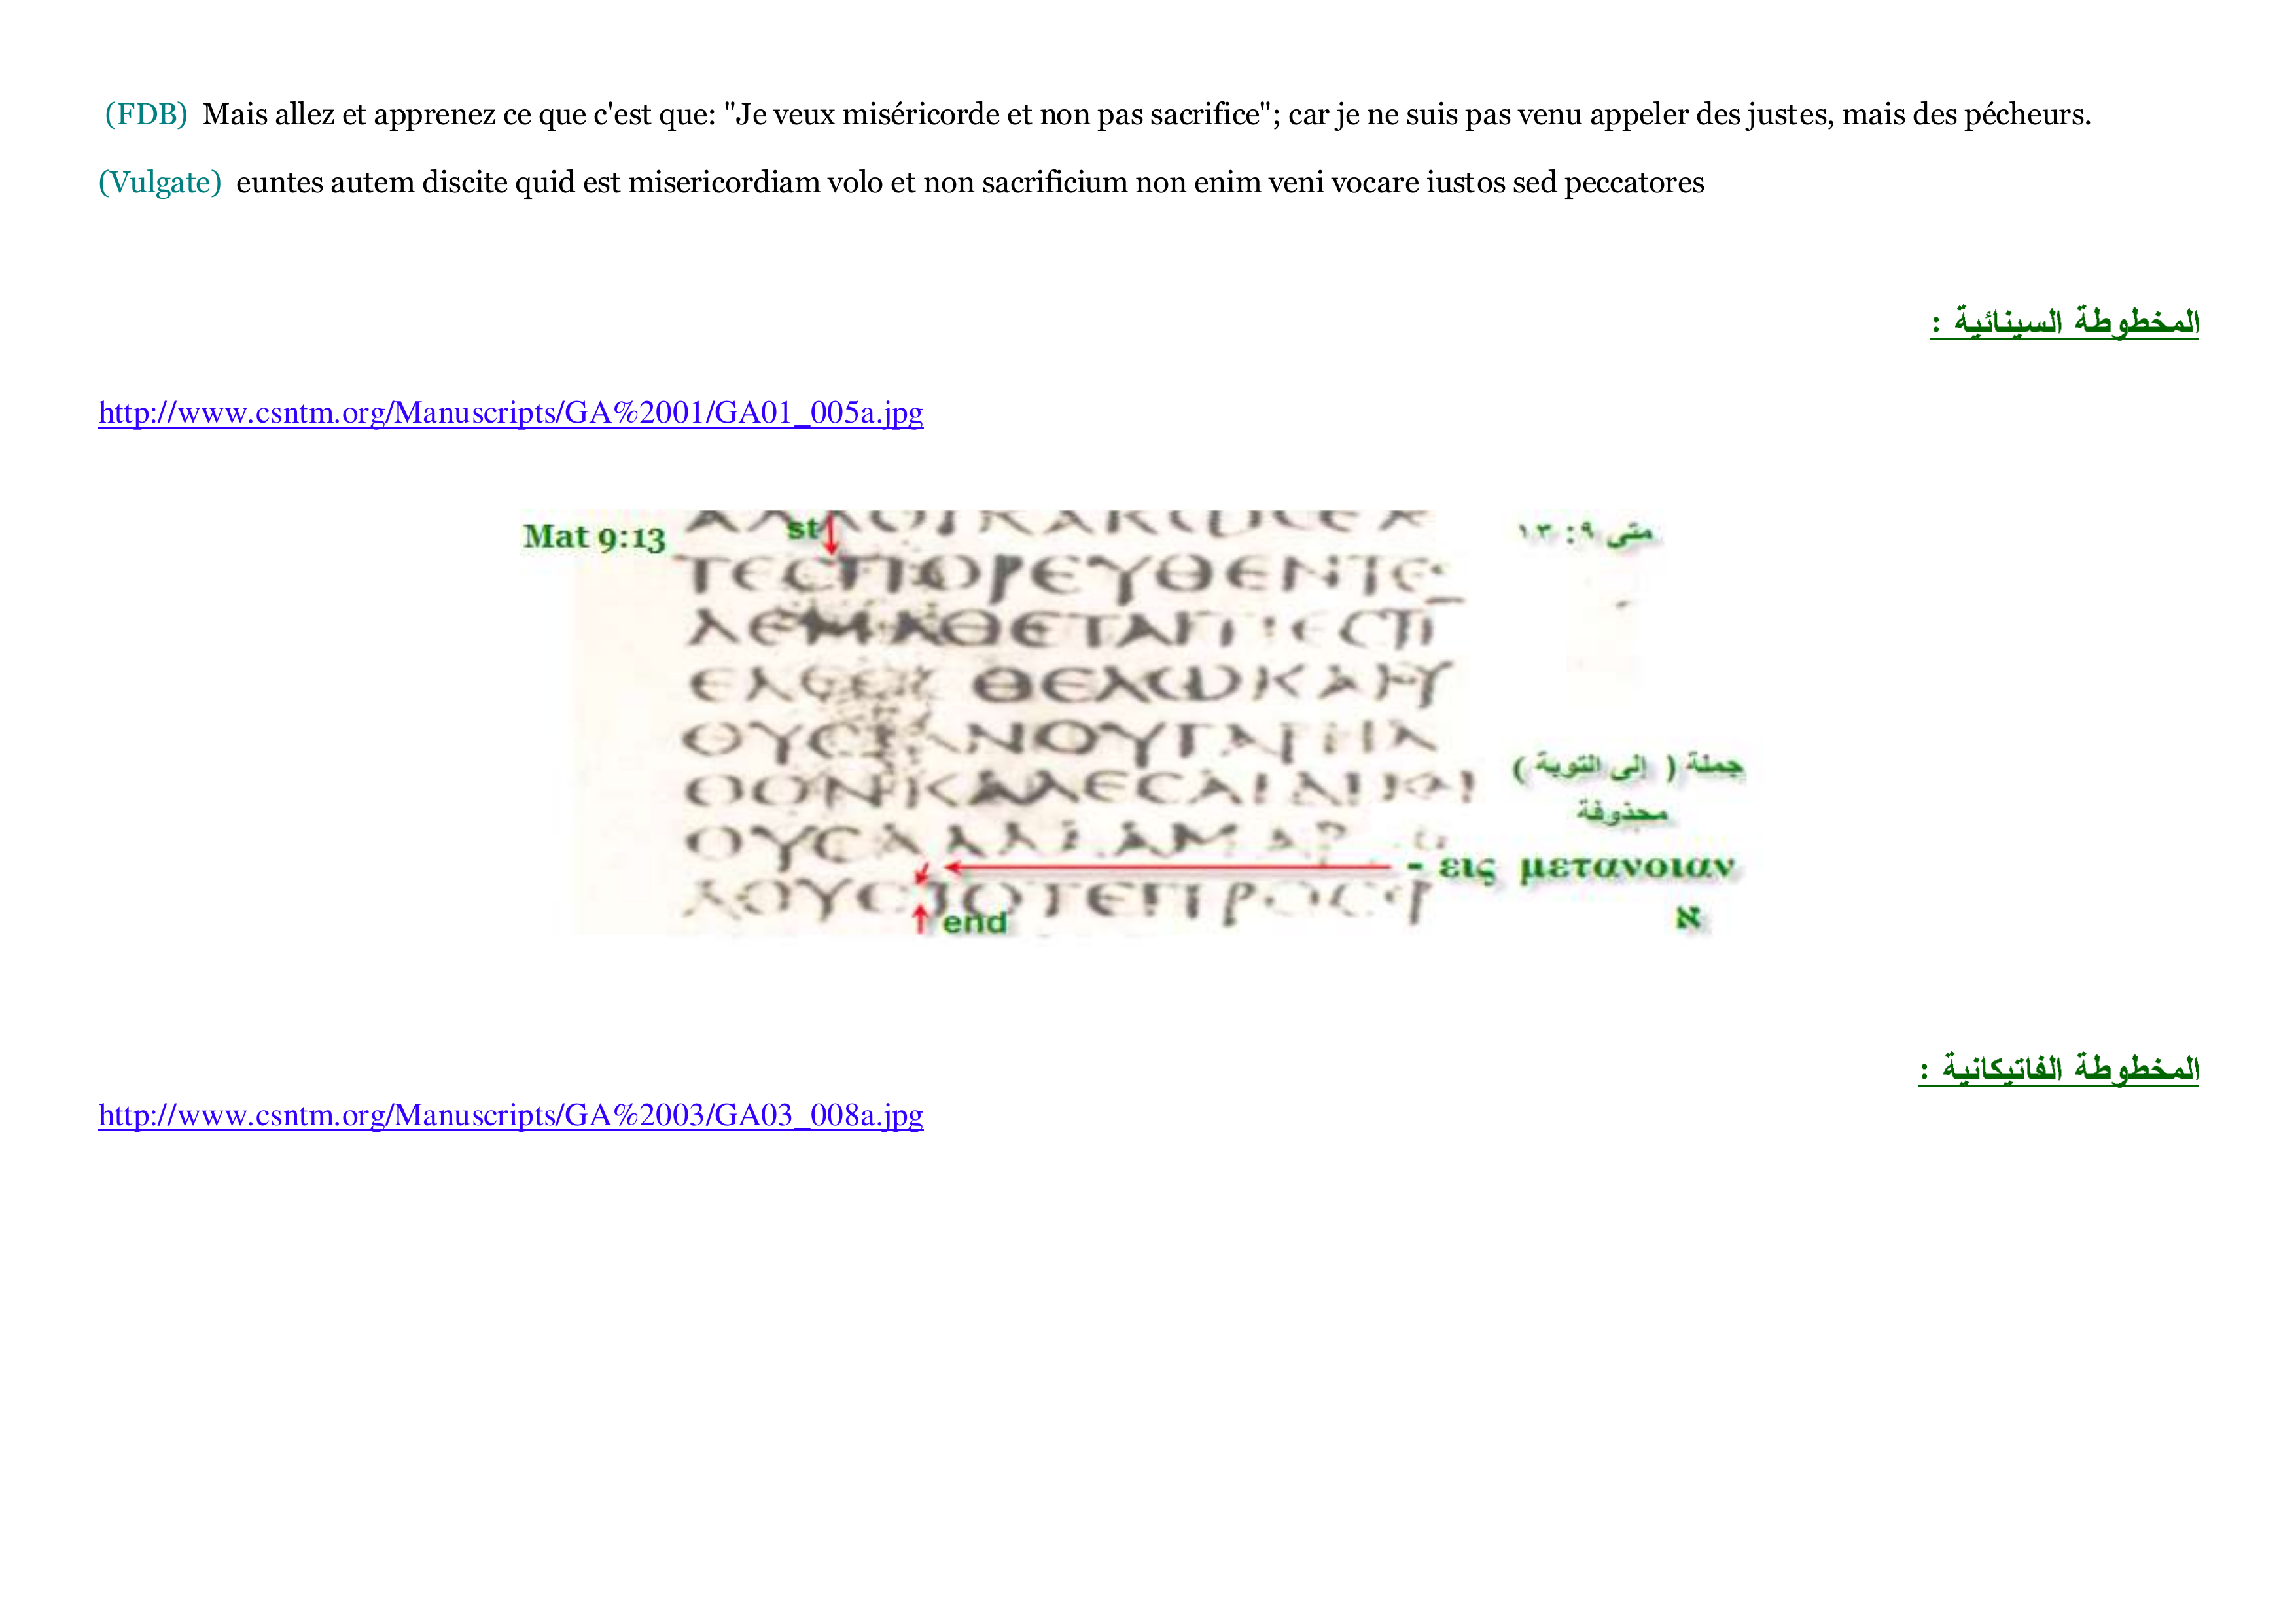 (FDB) Mais allez et apprenez ce que c'est que: "Je veux miséricorde et non pas sacrifice"; car je ne suis pas venu appeler des justes, mais des pécheurs.
(Vulgate) euntes autem discite quid est misericordiam volo et non sacrificium non enim veni vocare iustos sed peccatores
المخطوطة السينائية :
http://www.csntm.org/Manuscripts/GA%2001/GA01_005a.jpg
Mat 9:13
st
متى ٩: ١٣
ΤΕϹΠΟΡΕΥΘΕΝΤΕϹ
ΔΕΜΑΘΕΤΑΙΤΙΕϹΤΙ
ΘΕΛΩΚΑΙΟΥ
ΘΥϹΙΑΝΟΥΓΑΡΗΛ
ΘΟΝΚΑΛΕϹΑΙΔΙΚΑΙ
جملة ( إلى التوبة )
محذوفة
ΟΥϹΑΛΛΑΑΜΑΡ
- εις μετανοιαν
ΛΟΥϹΤΟΤΕΠΡΟϹΕΡ
end
א
المخطوطة الفاتيكانية :
http://www.csntm.org/Manuscripts/GA%2003/GA03_008a.jpg